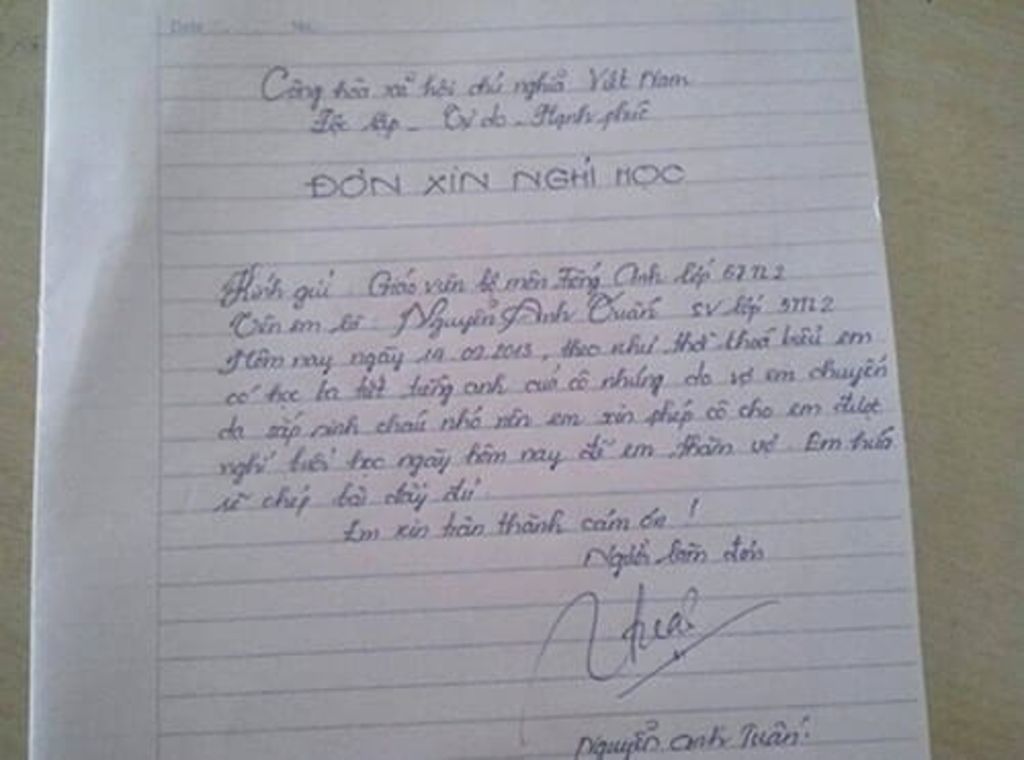 Date No.
Cộng hòa xã hội chủ nghĩa Việt Nam
Độc lập - Tự do - Hạnh phúc
ĐƠN XIN NGHỈ HỌC
Kính gửi : Giáo viên bộ môn Tiếng Anh lớp
Tên em là : Nguyễn Anh Tuấn SV lớp
Hôm nay ngày 19.02.2013, theo như thời khoá biểu em
có học ba tiết tiếng anh của cô nhưng do vợ em chuyển
dạ sắp sinh cháu nhỏ nên em xin phép cô cho em được
nghỉ buổi học ngày hôm nay để em thăm vợ. Em hứa
sẽ chép bài đầy đủ.
Em xin trân thành cám ơn !
Người làm đơn
Nguyễn Anh Tuấn.